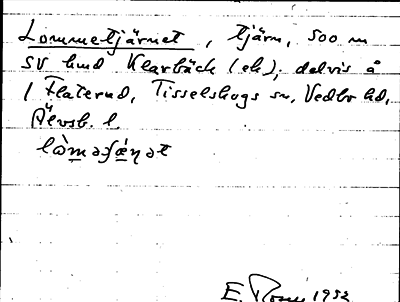 Lommetjärnet, tjärn, 500 m
SV hmd Klarbäck (ek); delvis å
1 Flaterud, Tisselskogs sn, Vedbo hd,
Älvsb. l
E. 1932